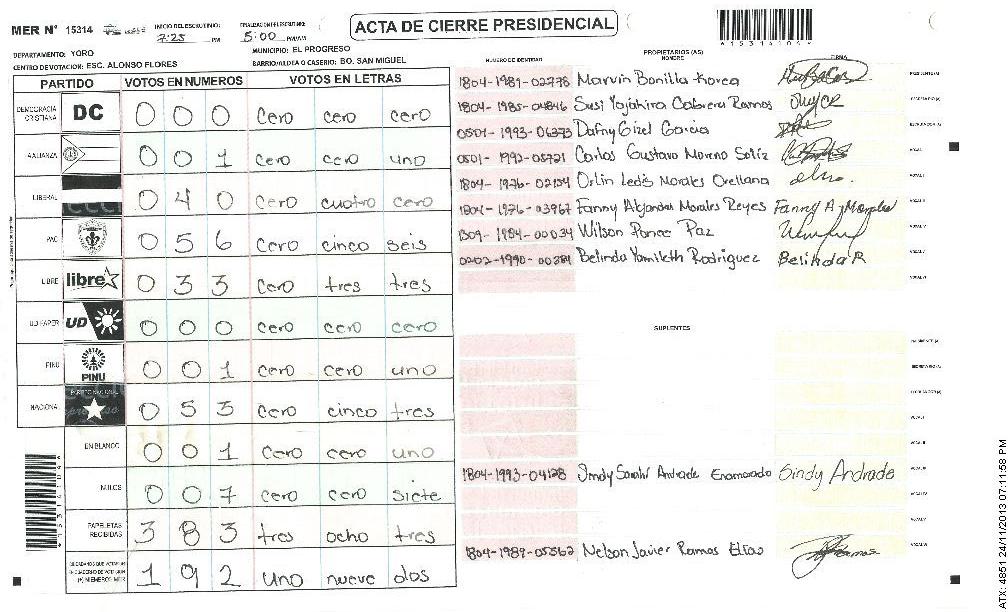 MER Nº 15314 INICIO DEL ESCRUTINIO: 7:25 PM FINALIZACION ESCRUTINIO: 5:00 PM/AM
ACTA DE CIERRE PRESIDENCIAL
*15314104*
DEPARTAMENTO: YORO MUNICIPIO: EL PROGRESO
CENTRO DE VOTACION: ESC. ALONSO FLORES BARRIO/ALDEA O CASERIO: BO. SAN MIGUEL
PARTIDO VOTOS EN NUMEROS VOTOS EN LETRAS
DEMOCRACIA CRISTIANA DC 0 0 0 cero cero cero
ALIANZA 0 0 1 cero cero uno
LIBERAL 0 4 0 cero cuatro cero
PAC 0 5 6 cero cinco seis
LIBRE libre 0 3 3 cero tres tres
UD FAPER UD 0 0 0 cero cero cero
PINU PINU 0 0 1 cero cero uno
NACIONAL 0 5 3 cero cinco tres
EN BLANCO 0 0 1 cero cero uno
NULOS 0 0 7 cero cero siete
PAPELETAS RECIBIDAS 3 8 3 tres ocho tres
1 9 2 uno nueve dos
NUMERO DE IDENTIDAD PROPIETARIOS (AS) NOMBRE FIRMA
1804-1989-02778 Marvin Bonilla PRESIDENTE(A)
1804-1985-04846 Susi Yajahira Cabrera Ramos SECRETARIO (A)
0501-1993-06373 Dafny Gizel Garcia ESCRUTADOR (A)
0501-1992-05721 Carlos Gustavo Moreno Soliz VOCAL I
1804-1976-02154 Orlin Ledis Morales Orellana
1804-1976-03967 Fanny Alejandra Morales Reyes Fanny A Morales
1309-1984-00034 Wilson Ponce Paz
0202-1990-00384 Belinda Yamileth Rodriguez Belinda R
SUPLENTES
1804-1993-04128 Sindy Sarahi Andrade Enamorado Sindy Andrade
1804-1989-05562 Nelson Javier Ramos Elias
ATX: 4851 24/11/2013 07:11:58 PM